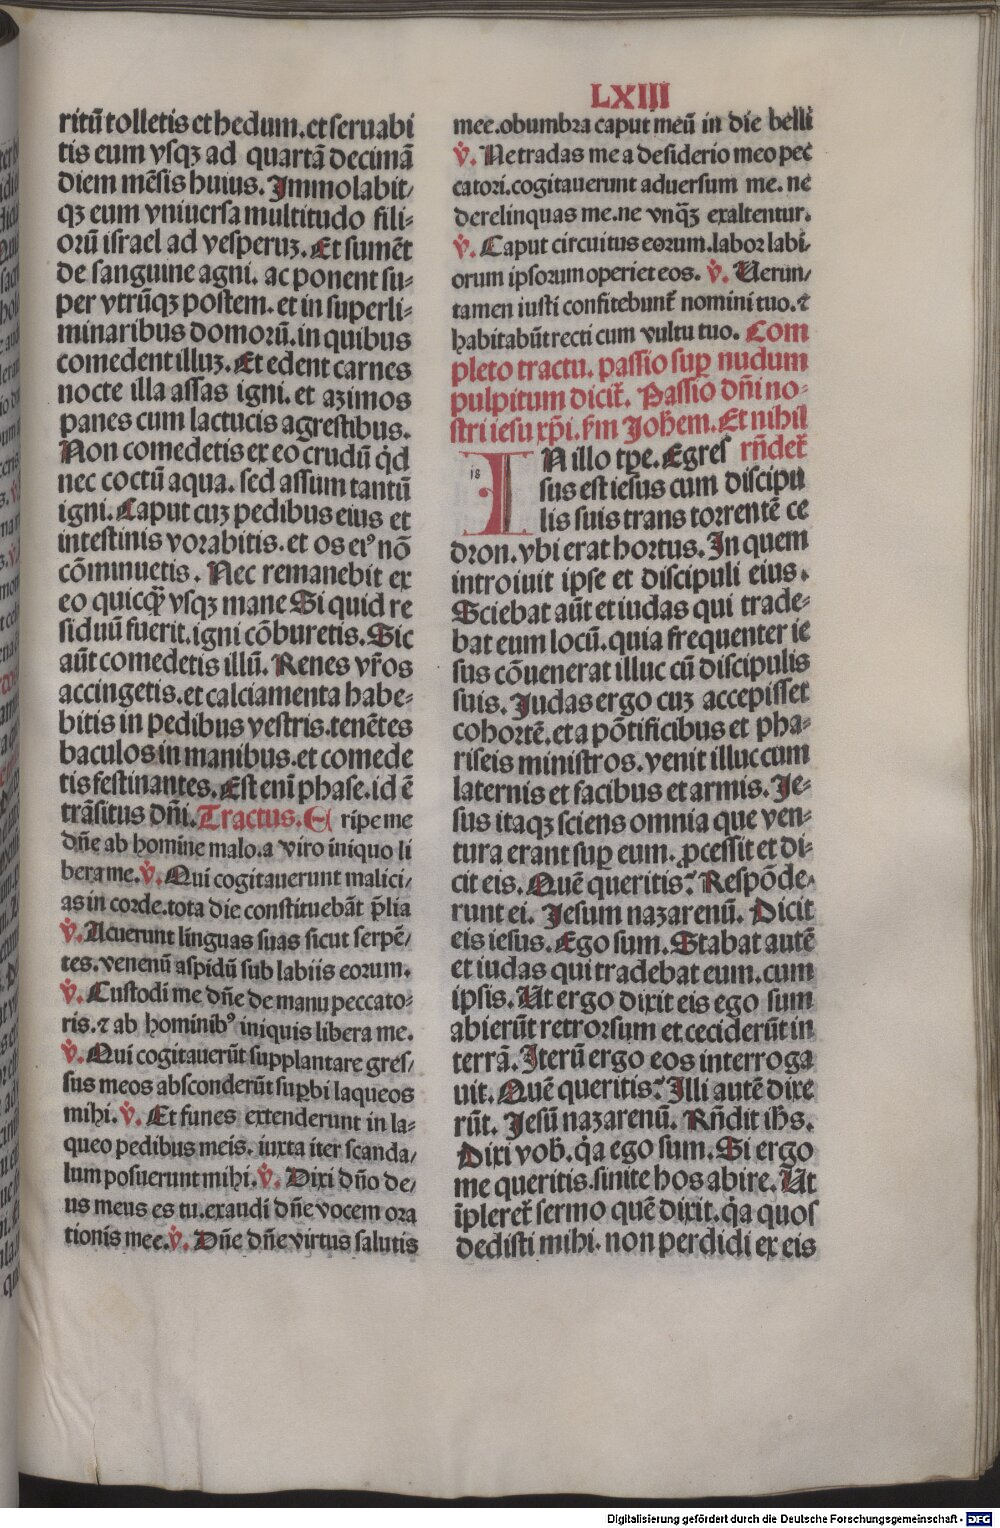 LXIII
ritū tolletis et hedum. et seruabi
tis eum vsqꝫ ad quartā decimā
diem mēsis huius. Immolabit⸗
qꝫ eum vniuersa multitudo fili⸗
orū israel ad vesperuꝫ. Et sumēt
de sanguine agni. ac ponent su⸗
per vtrūqꝫ postem. et in superli⸗
minaribus domorū. in quibus
comedent illuꝫ. Et edent carnes
nocte illa assas igni. et azimos
panes cum lactucis agrestibus.
Non comedetis ex eo crudū qd̄
nec coctū aqua. sed assum tantū
igni. Caput cuꝫ pedibus eius et
intestinis vorabitis. et os eiꝰ nō
cōminuetis. Nec remanebit ex
eo quicqꝫ̄ vsqꝫ mane Si quid re
siduū fuerit. igni cōburetis. Sic
aūt comedetis illū. Renes vr̄os
accingetis. et calciamenta habe⸗
bitis in pedibus vestris. tenētes
baculos in manibus. et comede
tis festinantes. Est eni̅ phase. id ē
trāsitus dn̄i. Tractus. E ripe me
dn̄e ab homine malo. a viro iniquo li
bera me. ℣. Qui cogitauerunt malici⸗
as in corde. tota die constituebāt p̄lia
℣. Acuerunt linguas suas sicut serpē⸗
tes. venenū aspidū sub labiis eorum.
℣. Custodi me dn̄e de manu peccato⸗
ris. ⁊ ab hominibꝰ iniquis libera me.
℣. Qui cogitauerūt supplantare gres⸗
sus meos absconderūt suꝑbi laqueos
mihi. ℣. Et funes extenderunt in la⸗
queo pedibus meis. iuxta iter scanda⸗
lum posuerunt mihi. ℣. Dixi dn̄o de⸗
us meus es tu. exaudi dn̄e vocem ora
tionis mee. ℣. Dn̄e dn̄e virtus salutis
mee. obumbra caput meū in die belli
℣. Ne tradas me a desiderio meo pec
catori. cogitauerunt aduersum me. ne
derelinquas me. ne vnqꝫ̄ exaltentur.
℣. Caput circuitus eorum. labor labi⸗
orum ipsorum operiet eos. ℣. Uerun⸗
tamen iusti confitebunt᷑ nomini tuo. ⁊
habitabūt recti cum vultu tuo. Com
pleto tractu. passio suꝑ nudum
pulpitum dicit᷑. Passio dn̄i no⸗
stri iesu xp̄i. s̄m Joh̄em. Et nihil
rn̄det᷑
18
IN illo tꝑe. Egres
sus est iesus cum discipu
lis suis trans torrentē ce
dron. vbi erat hortus. In quem
introiuit ipse et discipuli eius.
Sciebat aūt et iudas qui trade⸗
bat eum locū. quia frequenter ie
sus cōuenerat illuc cū discipulis
suis. Judas ergo cuꝫ accepisset
cohortē. et a pōtificibus et pha⸗
riseis ministros. venit illuc cum
laternis et facibus et armis. Je⸗
sus itaqꝫ sciens omnia que ven⸗
tura erant suꝑ eum. ꝓcessit et di⸗
cit eis. Quē queritis? Respōde⸗
runt ei. Jesum nazarenū. Dicit
eis iesus. Ego sum. Stabat autē
et iudas qui tradebat eum. cum
ipsis. Ut ergo dixit eis ego sum
abierūt retrorsum et ceciderūt in
terrā. Iterū ergo eos interroga
uit. Quē queritis? Illi autē dixe
rūt. Jesū nazarenū. Rn̄dit ih̄s.
Dixi vob̄. q̄a ego sum. Si ergo
me queritis. sinite hos abire. Ut
īpleret᷑ sermo quē dixit. q̄a quos
dedisti mihi. non perdidi ex eis
Digitalisierung gefördert durch die Deutsche Forschungsgemeinschaft - DFG